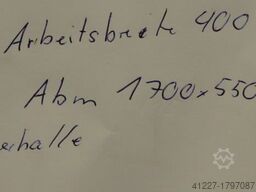 Arbeitsbreite 400
Abm 1700x550
erhalle
41227-1797087